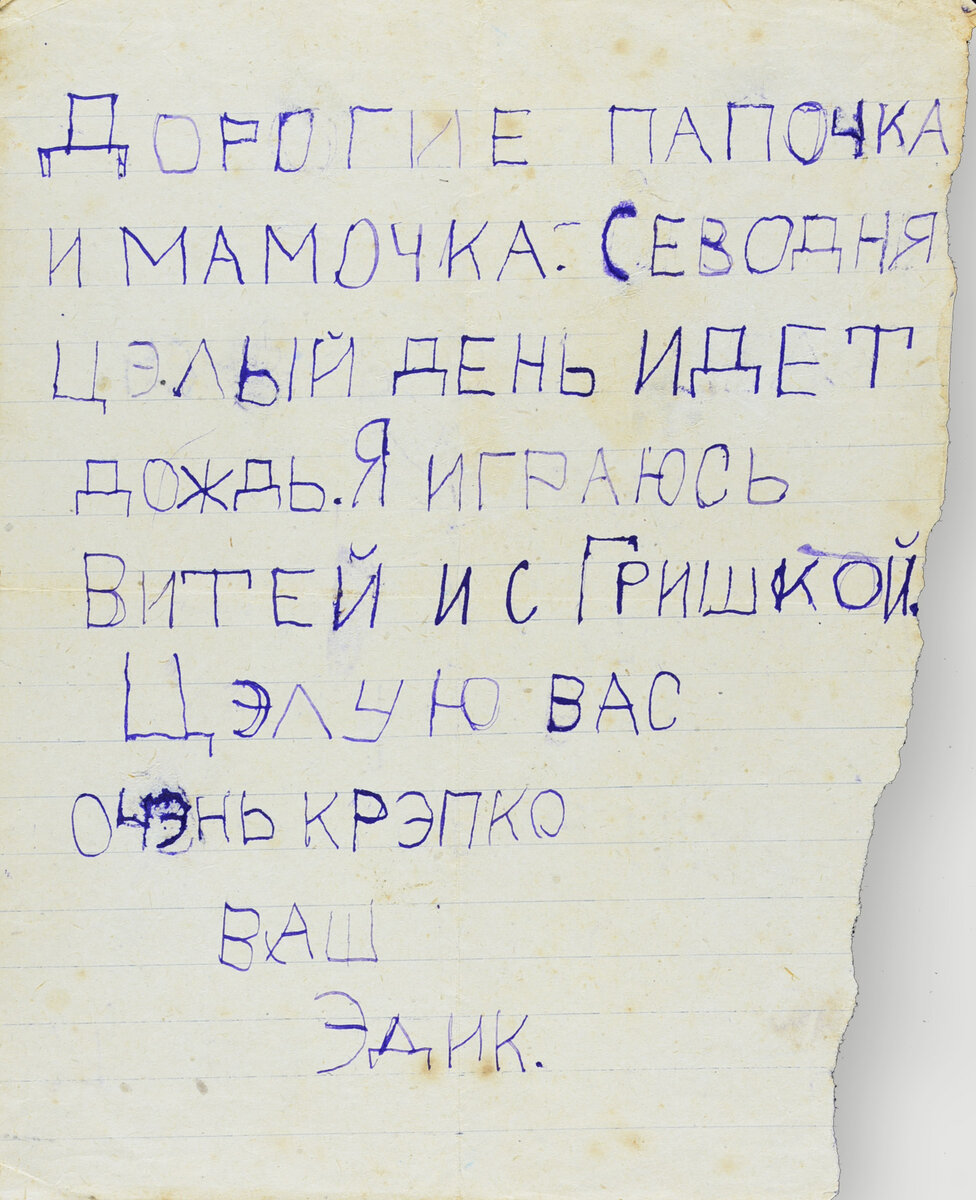 Дорогие папочка
и мамочка. Севодня
цэлый день идет
дождь. Я играюсь
Витей и с Гришкой.
Цэлую вас
очэнь крэпко
ваш
Эдик.